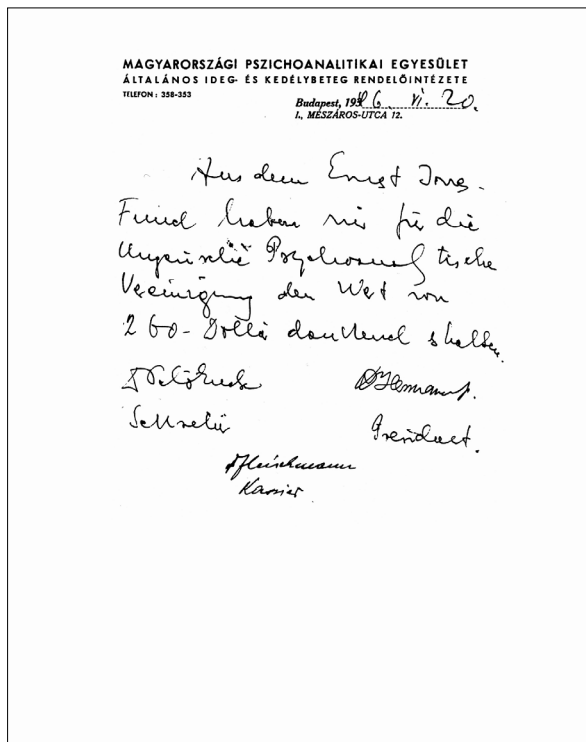 MAGYARORSZÁGI PSZICHOANALITIKAI EGYESÜLET
ÁLTALÁNOS IDEG- ÉS KEDÉLYBETEG RENDELŐINTÉZETE
TELEFON: 358-353
Budapest, 1946. VI. 20.
I., MÉSZÁROS-UTCA 12.
Aus dem Ernst Jones-
Fund haben wir für die
Ungarische Psychoanalytische
Vereinigung den Wert von
260- Dollar dankend erhalten.
Dr Hermann
Sekretär
Präsident.
Dr Fleischmann
Kassier